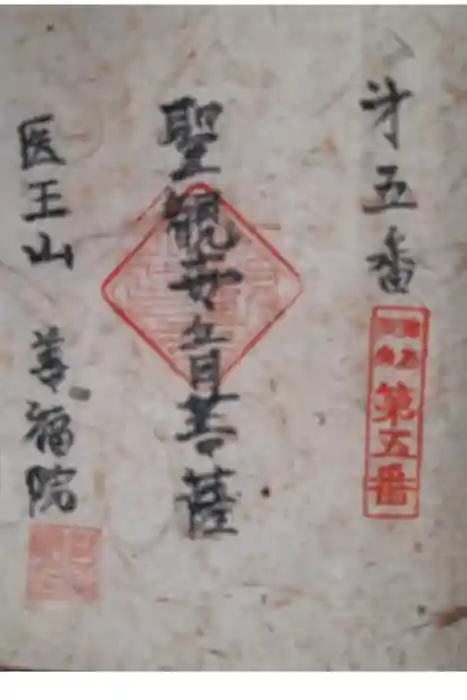 㐧五番
第五番
聖観世音菩薩
医王山 善福院